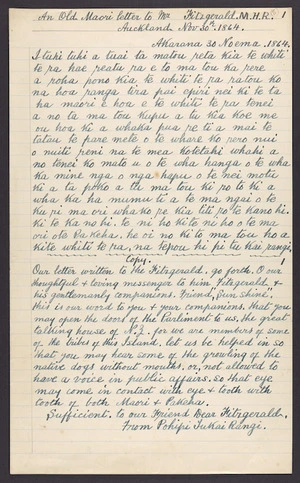 An Old Maori letter to Mr Fitzgerald. M.H.R. 1
Auckland Nov 30th 1864.
Akarana 30 Noema. 1864.
I tuki tuki a tuai ta matou reta kia te whiti
te pa hae peatu ra e to ma tou ka pere
a roha pono kia te whiti te pa ratou ko
na hoa ranga tira pai epiri nei ki te ta
ha maori e hoa e te whiti te pa tenei
a no ta ma tou kupu a tu kia koe me
ou hoa ki a whaka pua pe ti a mai te
tatau te pare mete o te whare ko rero nui
o nuiti reni na te mea kotetahi wahi a
no tenei ko mato u o te wha hanga o te wha
ka mine nga o nga hapu o te nei motu
ki a ta poko a tu ma tou ki po to ki a
wha ka ha mumu ti a te ma ngai o te
ku pi ma ori wha ko pe kia titi po te kanohi.
ki te Ka no hi. te ni ho ki te ni ho o te ma
ori o te Pa keha. he oi no ki to ma tou ho a
ki te whiti te pa, na te pou hi pi tu kai rangi.
Copy. 1
Our letter written to the Fitzgerald. go forth. O our
thoughtful & loving messenger to him Fitzgerald, &
his gentlemanly companions. Friend, Sun Shine.
this is our word to you & your companions, that you
may open the doors of the Parliment to us. the great
talking house of N.Z. for we are members of some
of the tribes of this Island. let us be helped in so
that you may hear some of the growling of the
native dogs without mouths. or, not allowed to
have a voice in public affairs. so that eye
may come in contact with eye & tooth with
tooth of both Maori & Pakeha.
Sufficient. to our Friend Dear Fitzgerald,
From Pohipi Tukai Rangi.